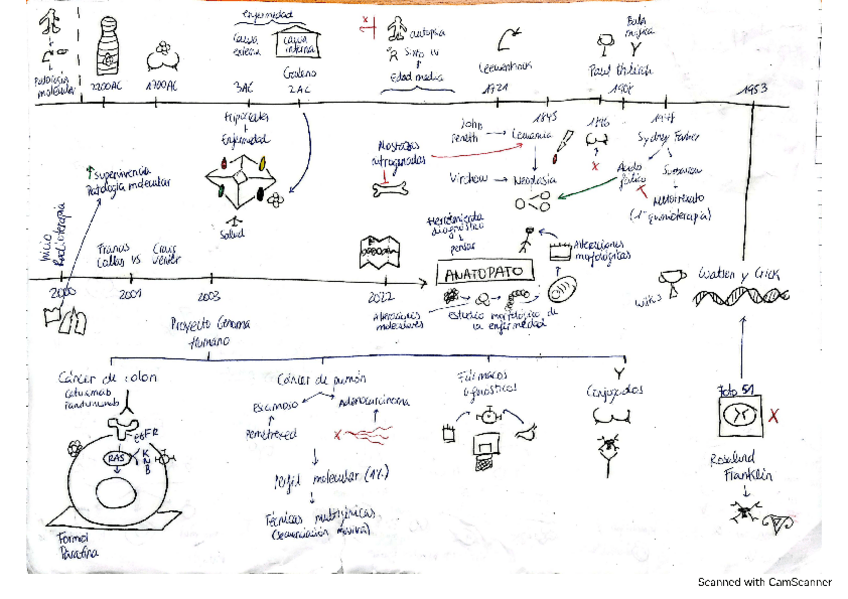 Patología
molecular
2200AC
1700AC
enfermedad
Causa
externa
causa
interna
Galeno
3AC
2AC
autopsia
Sixto IV
Edad media
Leeuwenhoek
1721
1845
Bala
mágica
Paul Ehrlich
1908
1953
Hipócrates
+
Enfermedad
Salud
↑ Supervivencia
Patología molecular
Inicio
Radioterapia
Mostazas
nitrogenadas
John
Bennett
Leucemia
Virchow
Neoplasia
X
Sydney Farber
Ácido
fólico
Metotrexato
(1ª quimioterapia)
Herramienta
diagnóstica
pensar
Alteraciones
morfológicas
ANATOPATO
Alteraciones
moleculares
Estudio morfológico de
la enfermedad
Francis
Collins
vs
Craig
Venter
2000
2001
2003
2022
Proyecto Genoma
Humano
Watson y Crick
Cáncer de colon
Cetuximab
Panitumumab
EGFR
RAS
K
N
B
Formol
Parafina
Cáncer de pulmón
Escamoso
Adenocarcinoma
Pemetrexed
X
Perfil molecular
Técnicas multigénicas
(secuenciación masiva)
Fármacos
agnósticos
Conjugados
Foto 51
X
Rosalind
Franklin
Scanned with CamScanner